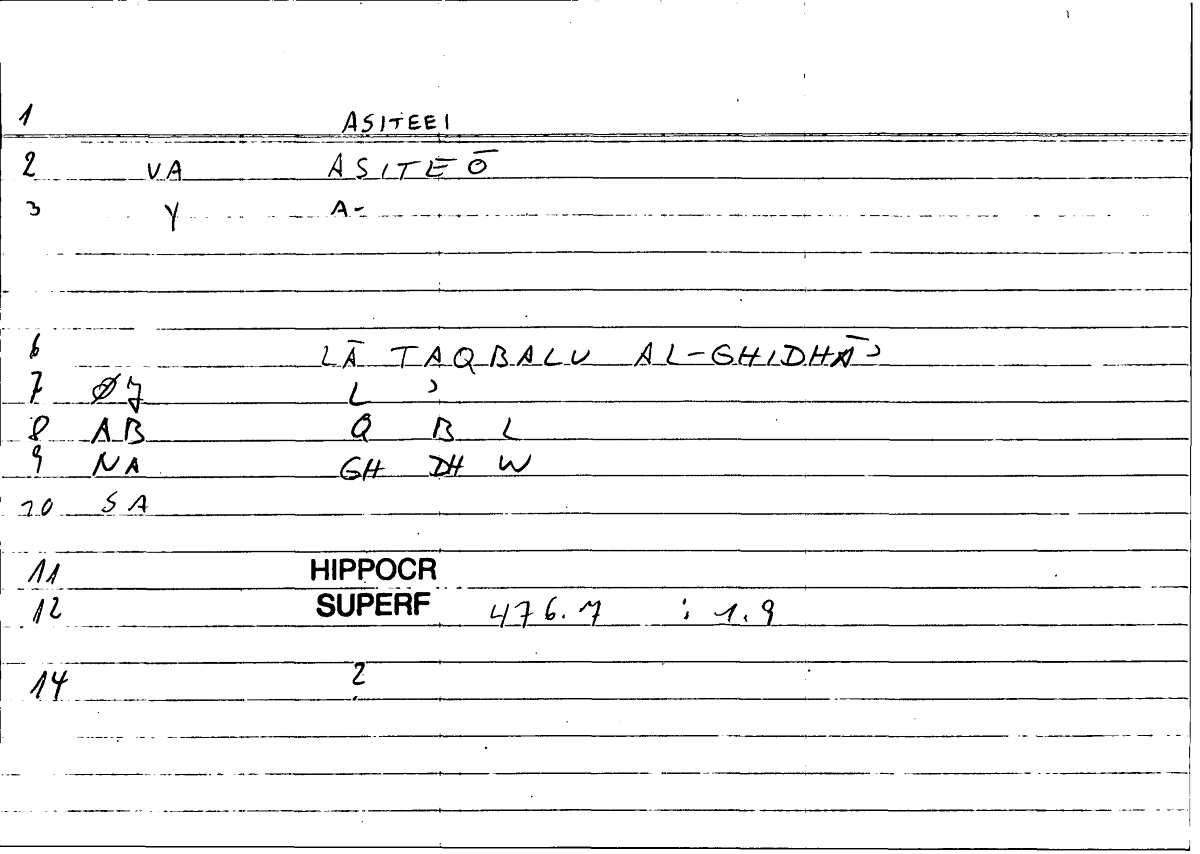 1 ASITEEI
2 VA ASITEŌ
3 Y A-
6 LĀ TAQBALU AL-GHIDHĀʾ
7 L ʾ
8 AB Q B L
9 NA GH DH W
10 SA
11 HIPPOCR
12 SUPERF 476.7 ; 1.9
14 2